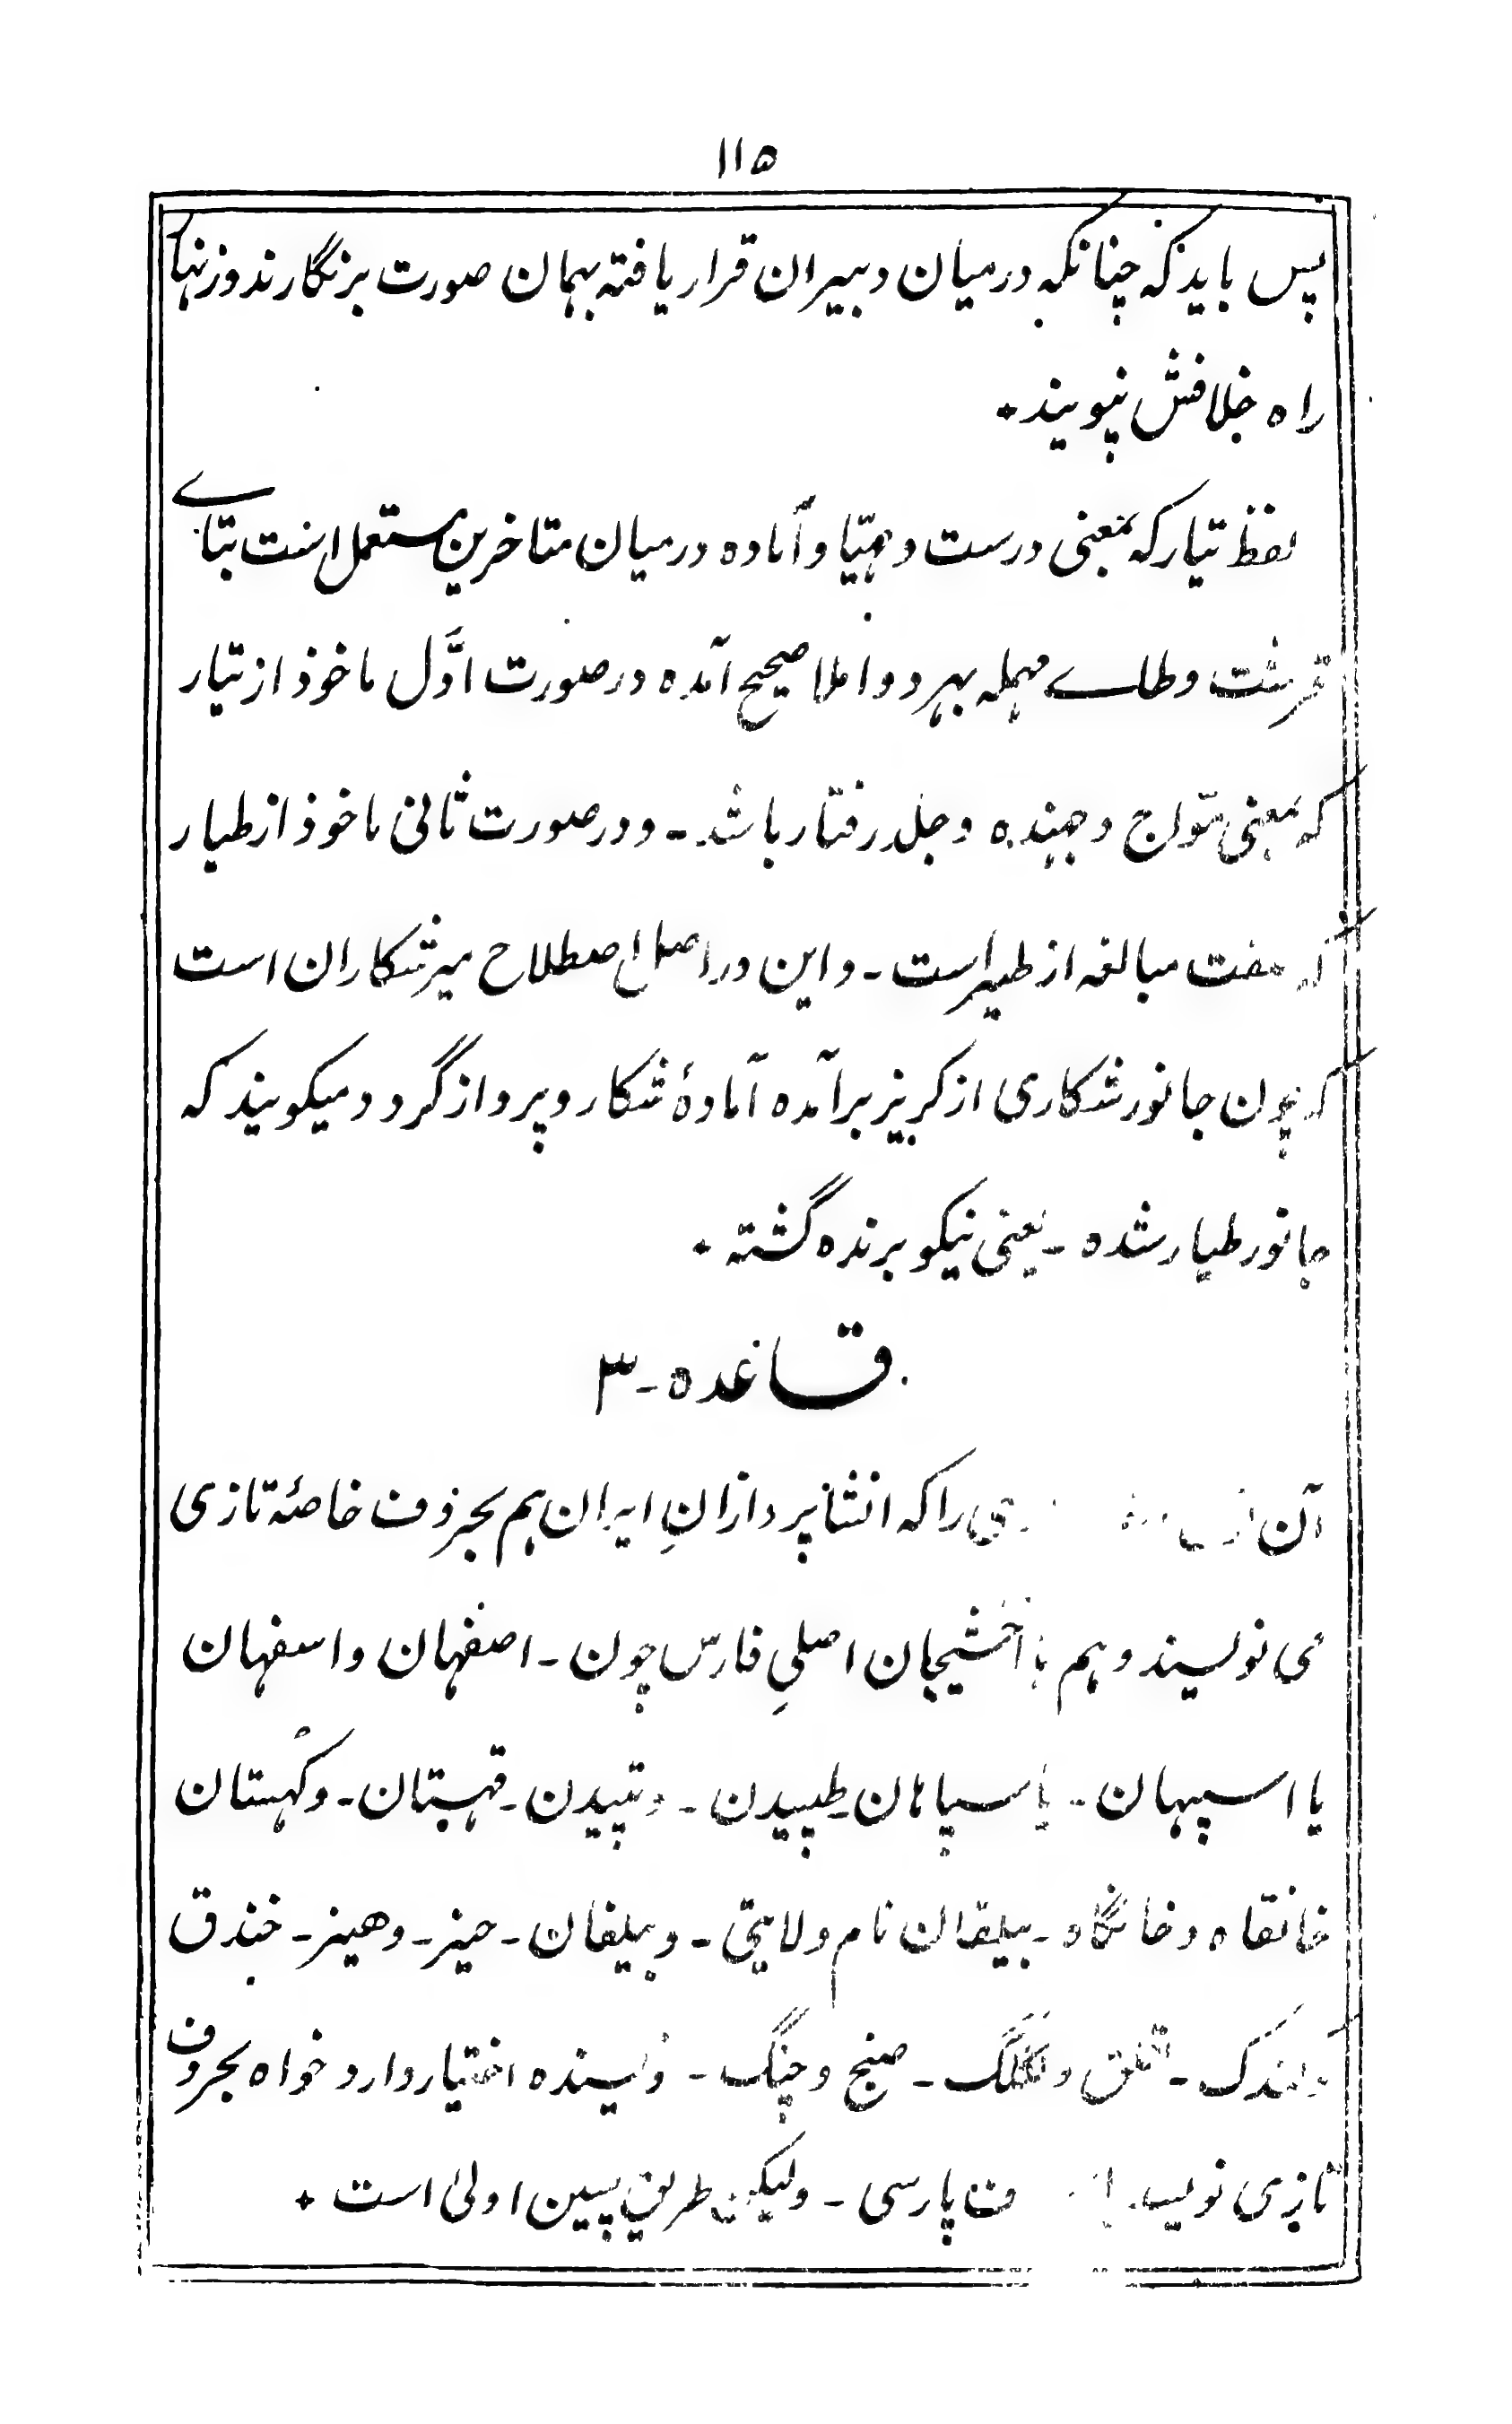 ۱۱۵
پس باید که چنانکه درمیان دبیران قرار یافته بهمان صورت برنگارند و زنهار
راه خلافش نپویند٭
لفظ تیار که بمعنی درست و مهیّا و آماده درمیان متاخرین مستعمل است بتاے
قرشت و طاے مهمله بهر دو املا صحیح آمده در صورت اوَّل ماخوذ از تیار
که بمعنی موّاج و جهنده و جلد رفتار باشد۔ و در صورت ثانی ماخوذ از طیار
که صفت مبالغه از طیر است۔ و این در اصل اصطلاح میر شکاران است
که چون جانور شکاری از کریز برآمده آمادهٔ شکار و پرواز گردد میگویند که
جانور طیار شده۔ یعنی نیکو پرنده گشته٭
قاعده۔۳
آن را که انشا پردازانِ ایران هم بحروف خاصهٔ تازی
می نویسند و هم با اصلیِ فارس چون۔ اصفهان و اسفهان
یا اسپهان۔ یا سپاهان۔ طپیدن۔ و تپیدن۔ قهستان۔ و کُهستان
خانقاه و خانگاه۔ بیلقان نام ولایتی۔ و بیلغان۔ حیز۔ و هیز۔ خندق
و کندک۔ و ۔ صنج و چنگ۔ نویسنده اختیار دارد خواه بحروف
تازی نویسد پارسی۔ ولیکن طریق پسین اولیٰ است٭